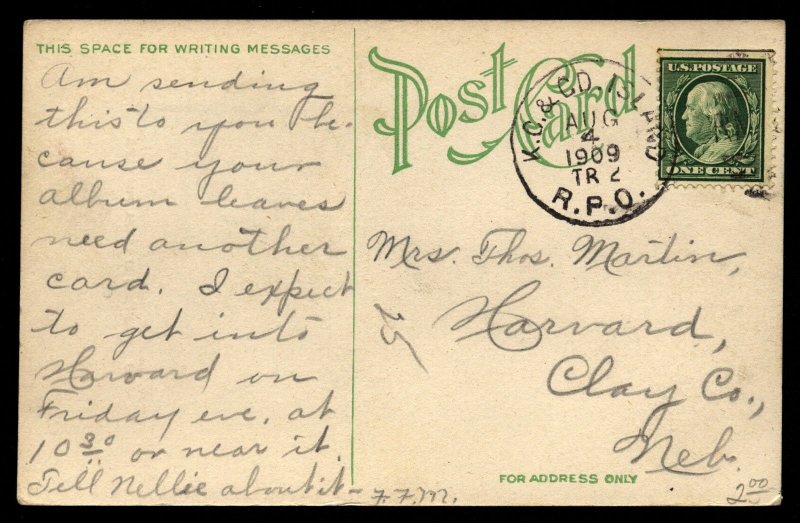 THIS SPACE FOR WRITING MESSAGES
Am sending
this to you be-
cause your
album leaves
need another
card. I expect
to get into
Harvard on
Friday eve. at
10 30 or near it.
Tell Nellie about it-
F.F.M.
Post Card
K.C. & GD. ISLAND
AUG
4
1909
TR 2
R.P.O.
U.S. POSTAGE
ONE CENT
Mrs. Thos. Martin,
Harvard,
Clay Co.,
Neb.
25
FOR ADDRESS ONLY
2 00